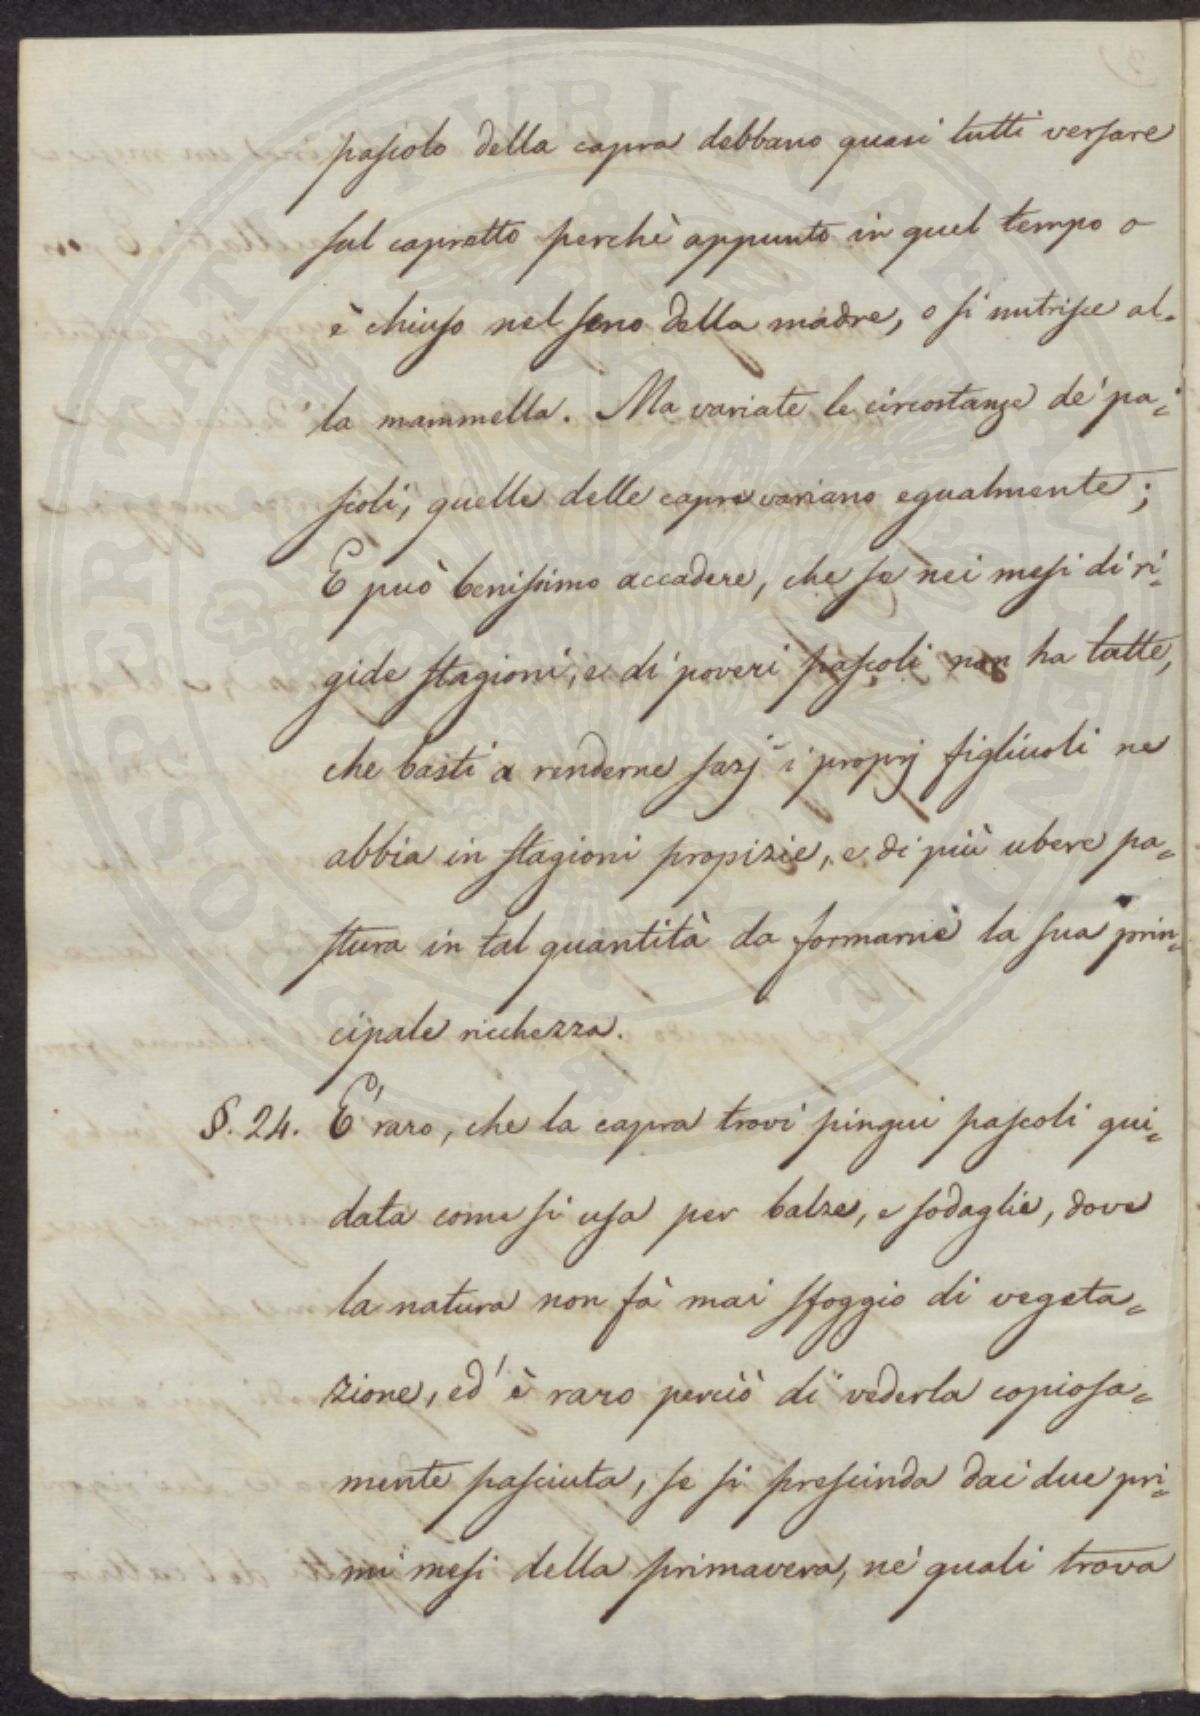 pascolo della capra debbano quasi tutti versare
sul capretto perchè appunto in quel tempo o
è chiuso nel seno della madre, o si nutrisce al=
la mammella. Ma variate le circostanze de' pa=
scoli, quelle delle capre variano egualmente;
E può benissimo accadere, che se nei mesi di ri=
gide stagioni, e di poveri pascoli non ha latte,
che basti a renderne sazj i proprj figliuoli ne
abbia in stagioni propizie, e di più ubere pa=
stura in tal quantità da formarne la sua prin=
cipale ricchezza.
§. 24. E' raro, che la capra trovi pingui pascoli gui=
data come si usa per balze, e sodaglie, dove
la natura non fà mai sfoggio di vegeta=
zione, ed' è raro perciò di vederla copiosa=
mente pasciuta, se si prescinda dai due pri=
mi mesi della primavera, ne' quali trova
PROSPERITATI PUBLICAE AUGENDAE